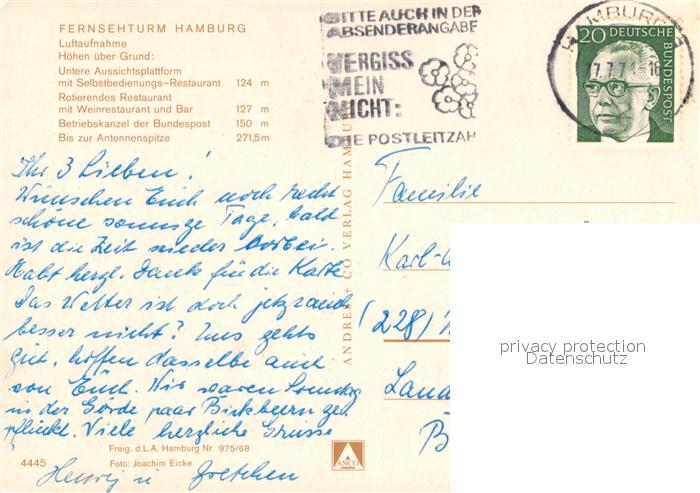 FERNSEHTURM HAMBURG
Luftaufnahme
Höhen über Grund:
Untere Aussichtsplattform
mit Selbstbedienungs-Restaurant 124 m
Rotierendes Restaurant
mit Weinrestaurant und Bar 127 m
Betriebskanzel der Bundespost 150 m
Bis zur Antennenspitze 271,5m
BITTE AUCH IN DER
ABSENDERANGABE
VERGISS
MEIN
NICHT:
DIE POSTLEITZAH
HAMBURG
17.7.7
20 DEUTSCHE
BUNDESPOST
Ihr 3 Lieben!
Wünschen Euch noch recht
schöne sonnige Tage, bald
ist die Zeit wieder vorbei.
Habt herzl. Dank für die Karte
Das Wetter ist doch jetzt auch
besser nicht? Uns gehts
gut, hoffen dasselbe auch
von Euch. Wir waren Sonntag
in der Görde paar Bickbeern ge
pflückt. Viele herzliche Grüsse
Henry u Gretchen
Freig. d.L.A. Hamburg Nr. 975/68
4445 Foto: Joachim Eicke
ANCO
ANDRES + CO VERLAG HAMBURG
Familie
Karl-
(228)
Land
B
privacy protection
Datenschutz